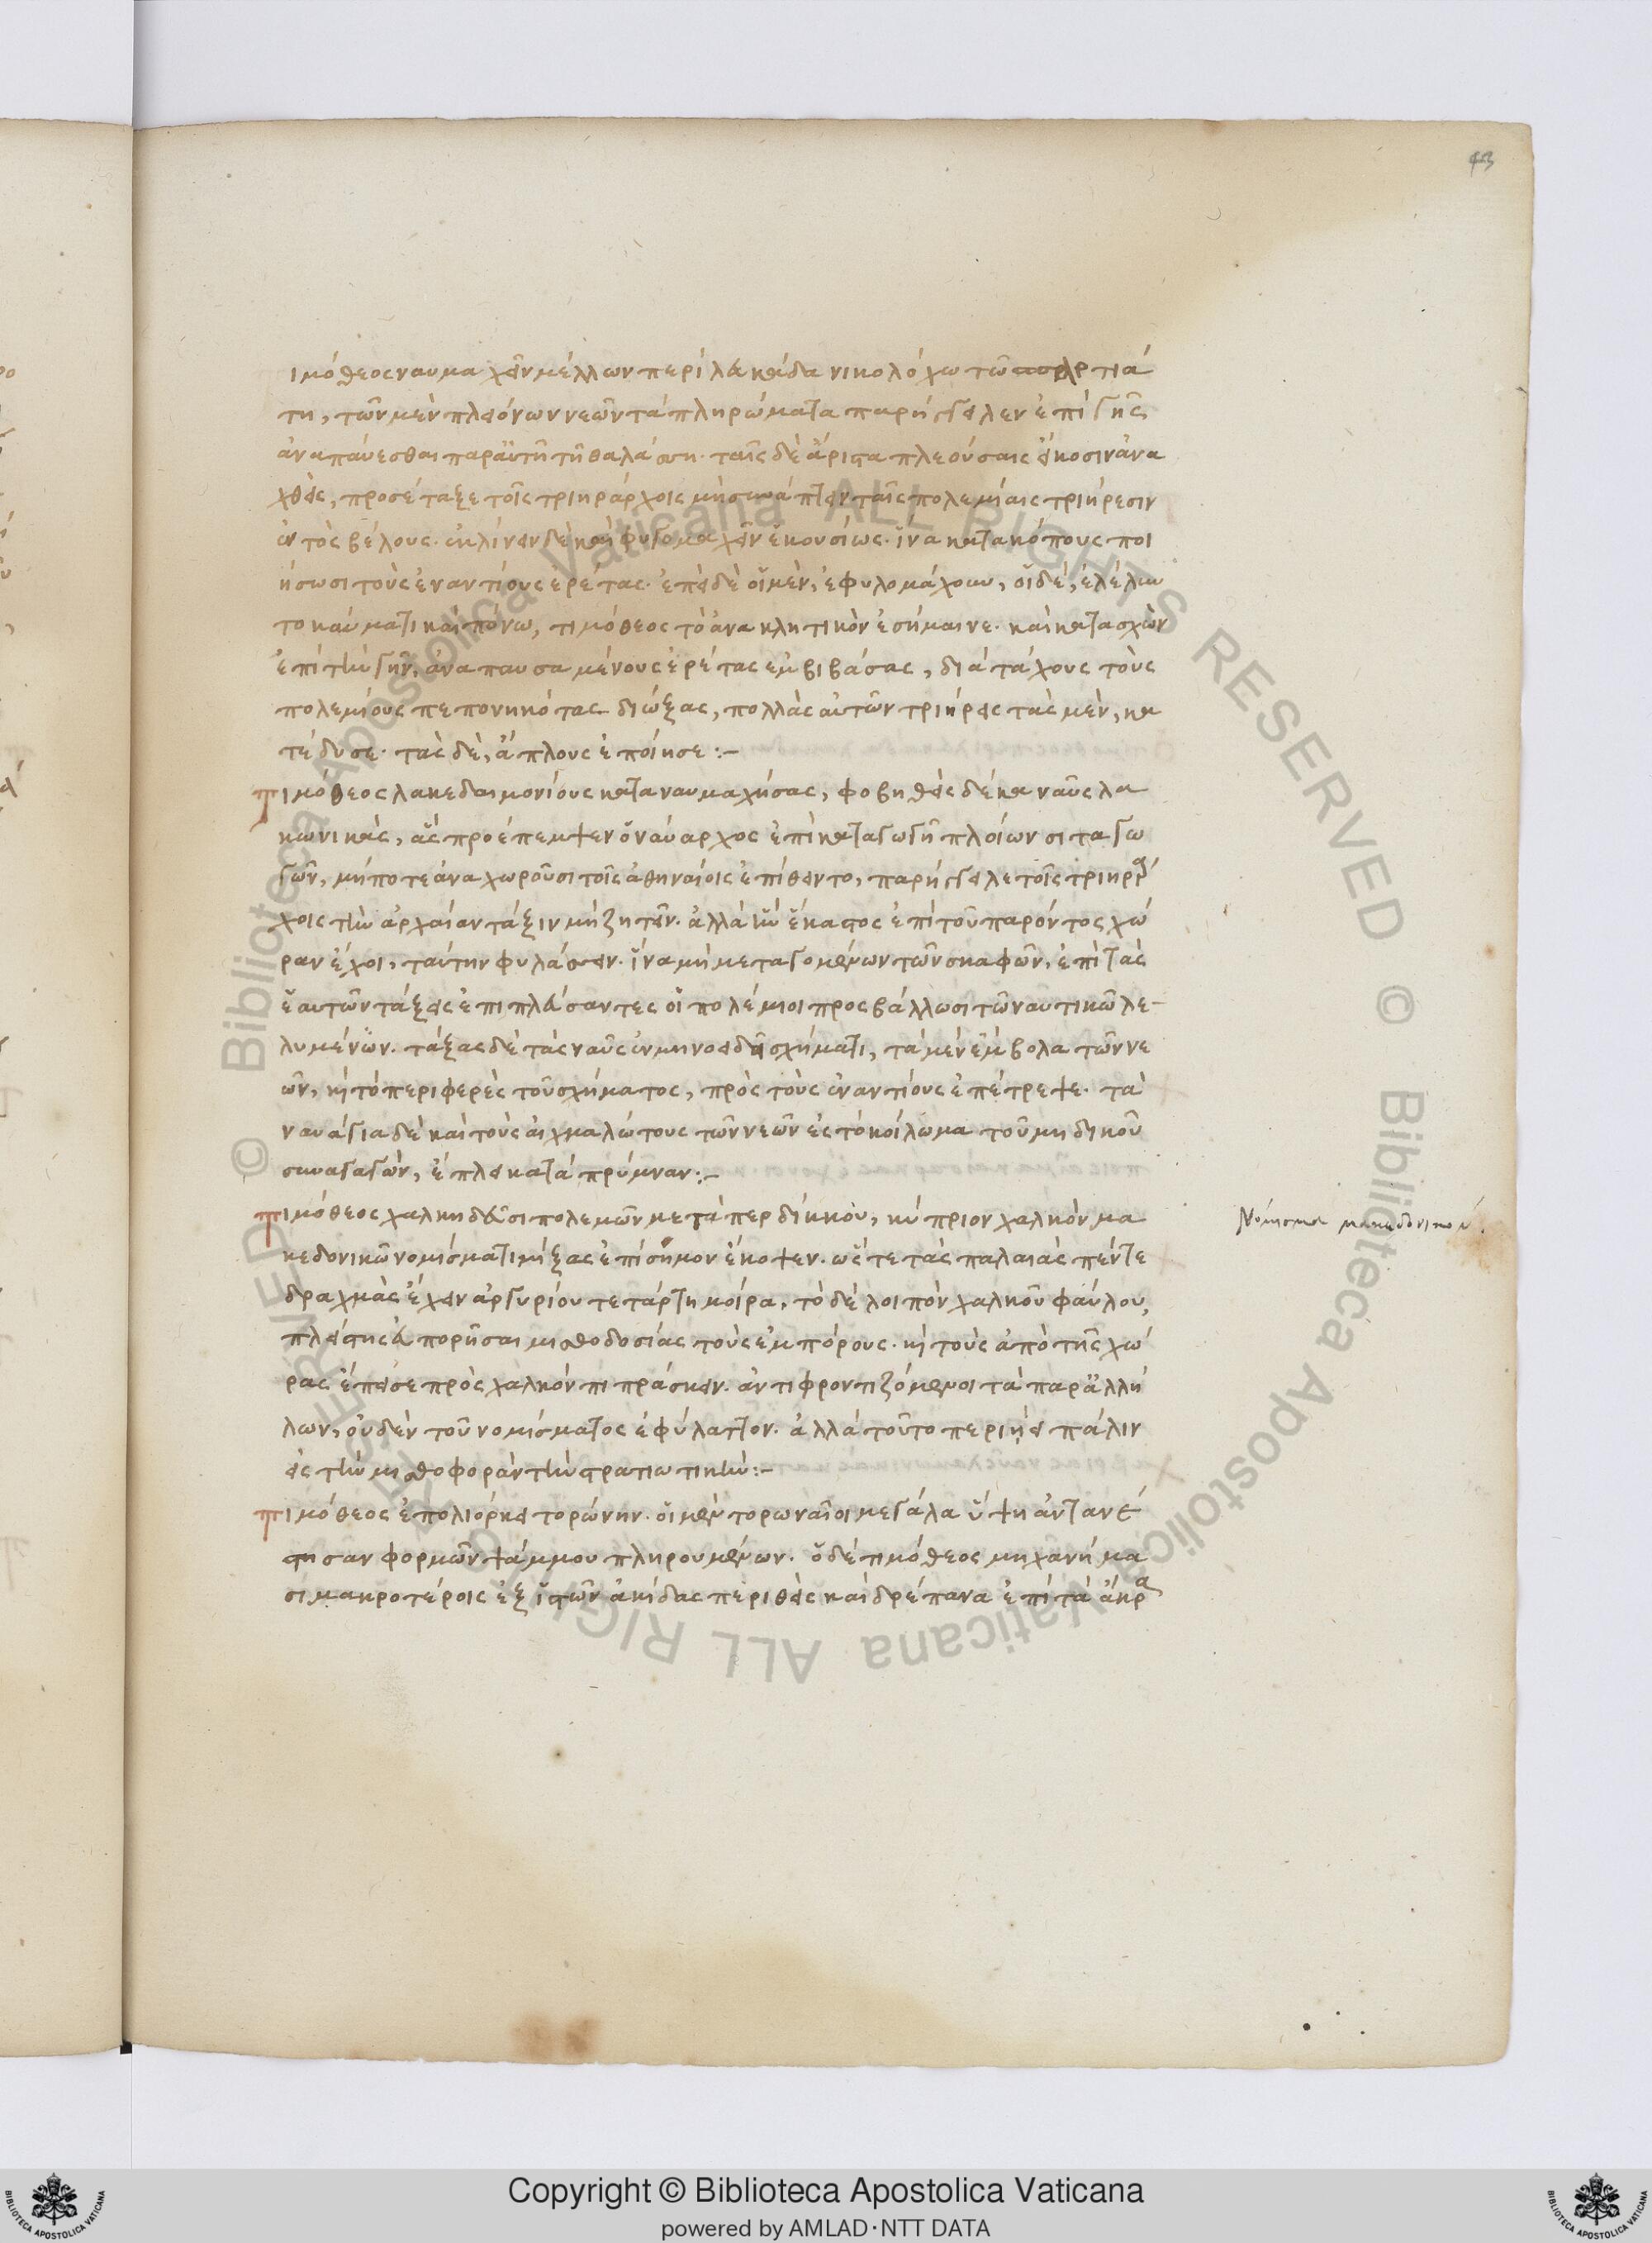 43
ιμόθεος ναυμαχεῖν μέλλων περὶ λευκάδα νικολόχω τῶ σπαρτιά
τη, τῶν μὲν πλειόνων νεῶν τὰ πληρώματα παρήγγειλεν ἐπὶ γῆς
ἀναπαύεσθαι παρ αὐτῆ τῆ θαλάσση. ταῖς δὲ ἄριστα πλεούσαις εἴκοσιν ἀνα
χθεὶς, προσέταξε τοῖς τριηράρχοις μὴ συνάπτειν ταῖς πολεμίαις τριήρεσιν
ἐντὸς βέλους. ἐκκλίνειν δὲ καὶ φυγομαχεῖν ἑκουσίως. ἵνα κατακόπους ποι
ήσωσι τοὺς ἐναντίους ἐρέτας. ἐπεὶ δὲ οἱ μὲν, ἐφυγομάχουν, οἱ δὲ, ἐλέλυν
το καύματι καὶ πόνω, τιμόθεος τὸ ἀνακλητικὸν ἐσήμαινε. καὶ κατασχὼν
ἐπὶ τὴν γῆν, ἀναπαυσαμένους ἐρέτας ἐμβιβάσας, διὰ τάχους τοὺς
πολεμίους πεπονηκότας διώξας, πολλὰς αὐτῶν τριήρεις τὰς μὲν, κα
τέδυσε. τὰς δὲ, ἄπλους ἐποίησε:-
Τιμόθεος λακεδαιμονίους καταναυμαχήσας, φοβηθεὶς δέκα ναῦς λα
κωνικὰς, ἃς προέπεμψεν ὁ ναύαρχος ἐπὶ καταγωγῆ πλοίων σιταγω
γῶν, μήποτε ἀναχωροῦσι τοῖς ἀθηναίοις ἐπίθειντο, παρήγγειλε τοῖς τριηράρ
χοις τὴν ἀρχαίαν τάξιν μὴ ζητεῖν. ἀλλὰ ἣν ἕκαστος ἐπὶ τοῦ παρόντος χώ
ραν ἔχοι, ταύτην φυλάσσειν. ἵνα μὴ μεταγομένων τῶν σκαφῶν, ἐπὶ τὰς
ἑαυτῶν τάξεις ἐπιπλεύσαντες οἱ πολέμιοι προσβάλλωσι τῶν ναυτικῶν λε-
λυμένων. τάξας δὲ τὰς ναῦς ἐν μηνοειδεῖ σχήματι, τὰ μὲν ἔμβολα τῶν νε
ῶν, καὶ τὸ περιφερὲς τοῦ σχήματος, πρὸς τοὺς ἐναντίους ἐπέτρεψε. τὰ
ναυάγια δὲ καὶ τοὺς αἰχμαλώτους τῶν νεῶν ἐς τὸ κοίλωμα τοῦ μηδικοῦ
συναγαγὼν, ἔπλει κατὰ πρύμναν:-
Τιμόθεος χαλκηδεῦσι πολεμῶν μετὰ περδίκκου, κύπριον χαλκὸν μα
κεδονικῶ νομίσματι μίξας ἐπίσημον ἔκοψεν. ὥστε τὰς παλαιὰς πέντε
δραχμὰς ἔχειν ἀργυρίου τετάρτη μοίρα, τὸ δὲ λοιπὸν χαλκοῦ φαύλου,
πλείστης εὐπορῆσαι μισθοδοσίας τοὺς ἐμπόρους. καὶ τοὺς ἀπὸ τῆς χώ
ρας ἔπεισε πρὸς χαλκὸν πιπράσκειν. ἀντιφροντιζόμενοι τὰ παρ ἀλλή
λων, οὐδὲν τοῦ νομίσματος ἐφύλαττον. ἀλλὰ τοῦτο περιήει πάλιν
εἰς τὴν μισθοφορὰν τὴν στρατιωτικήν:-
Τιμόθεος ἐπολιόρκει τορώνην. οἱ μὲν τορωναῖοι μεγάλα ὕψη ἀντανέ
στησαν φορμῶν ψάμμου πληρουμένων. ὁ δὲ τιμόθεος μηχανήμα
σι μακροτέροις ἐξ ἱστῶν ἀκίδας περιθεὶς καὶ δρέπανα ἐπὶ τὰ ἄκρα
Νόμισμα μακεδονικον.
Copyright © Biblioteca Apostolica Vaticana
powered by AMLAD·NTT DATA
© Biblioteca Apostolica Vaticana ALL RIGHTS RESERVED © Biblioteca Apostolica Vaticana ALL RIGHTS RESERVED
BIBLIOTECA APOSTOLICA VATICANA
BIBLIOTECA APOSTOLICA VATICANA